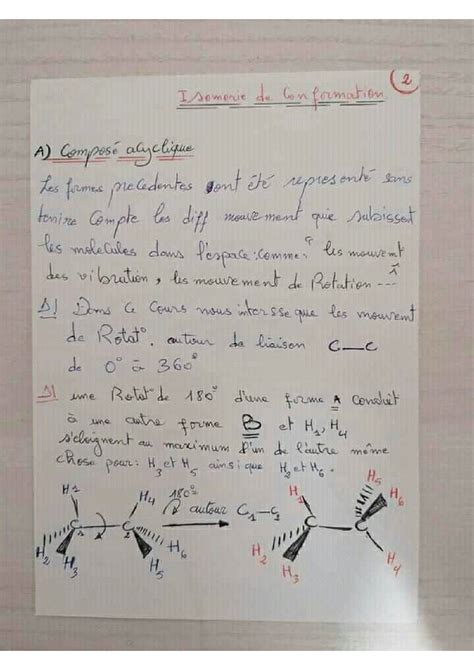 2
Isomerie de Conformation
A) Composé acyclique
Les formes precedentes ont été representé sans
tenire Compte les diff mouvement que subissent
les molécules dans l'espace: comme les mouvent
des vibration, les mouvement de Rotation ---
Dans ce Cours nous intersse que les mouvent
de Rotat° autour la liaison C—C
de 0° à 360°
une Rotat° de 180° d'une forme A Conduit
à une autre forme B et H1, H4
s'eloignent au maximum l'un de l'autre même
chose pour: H3 et H5 ainsi que H2 et H6.
H1 H4 180° autour C1-C2 H1 H5 H6
C C C C
H2 H3 H5 H6 H2 H3 H4